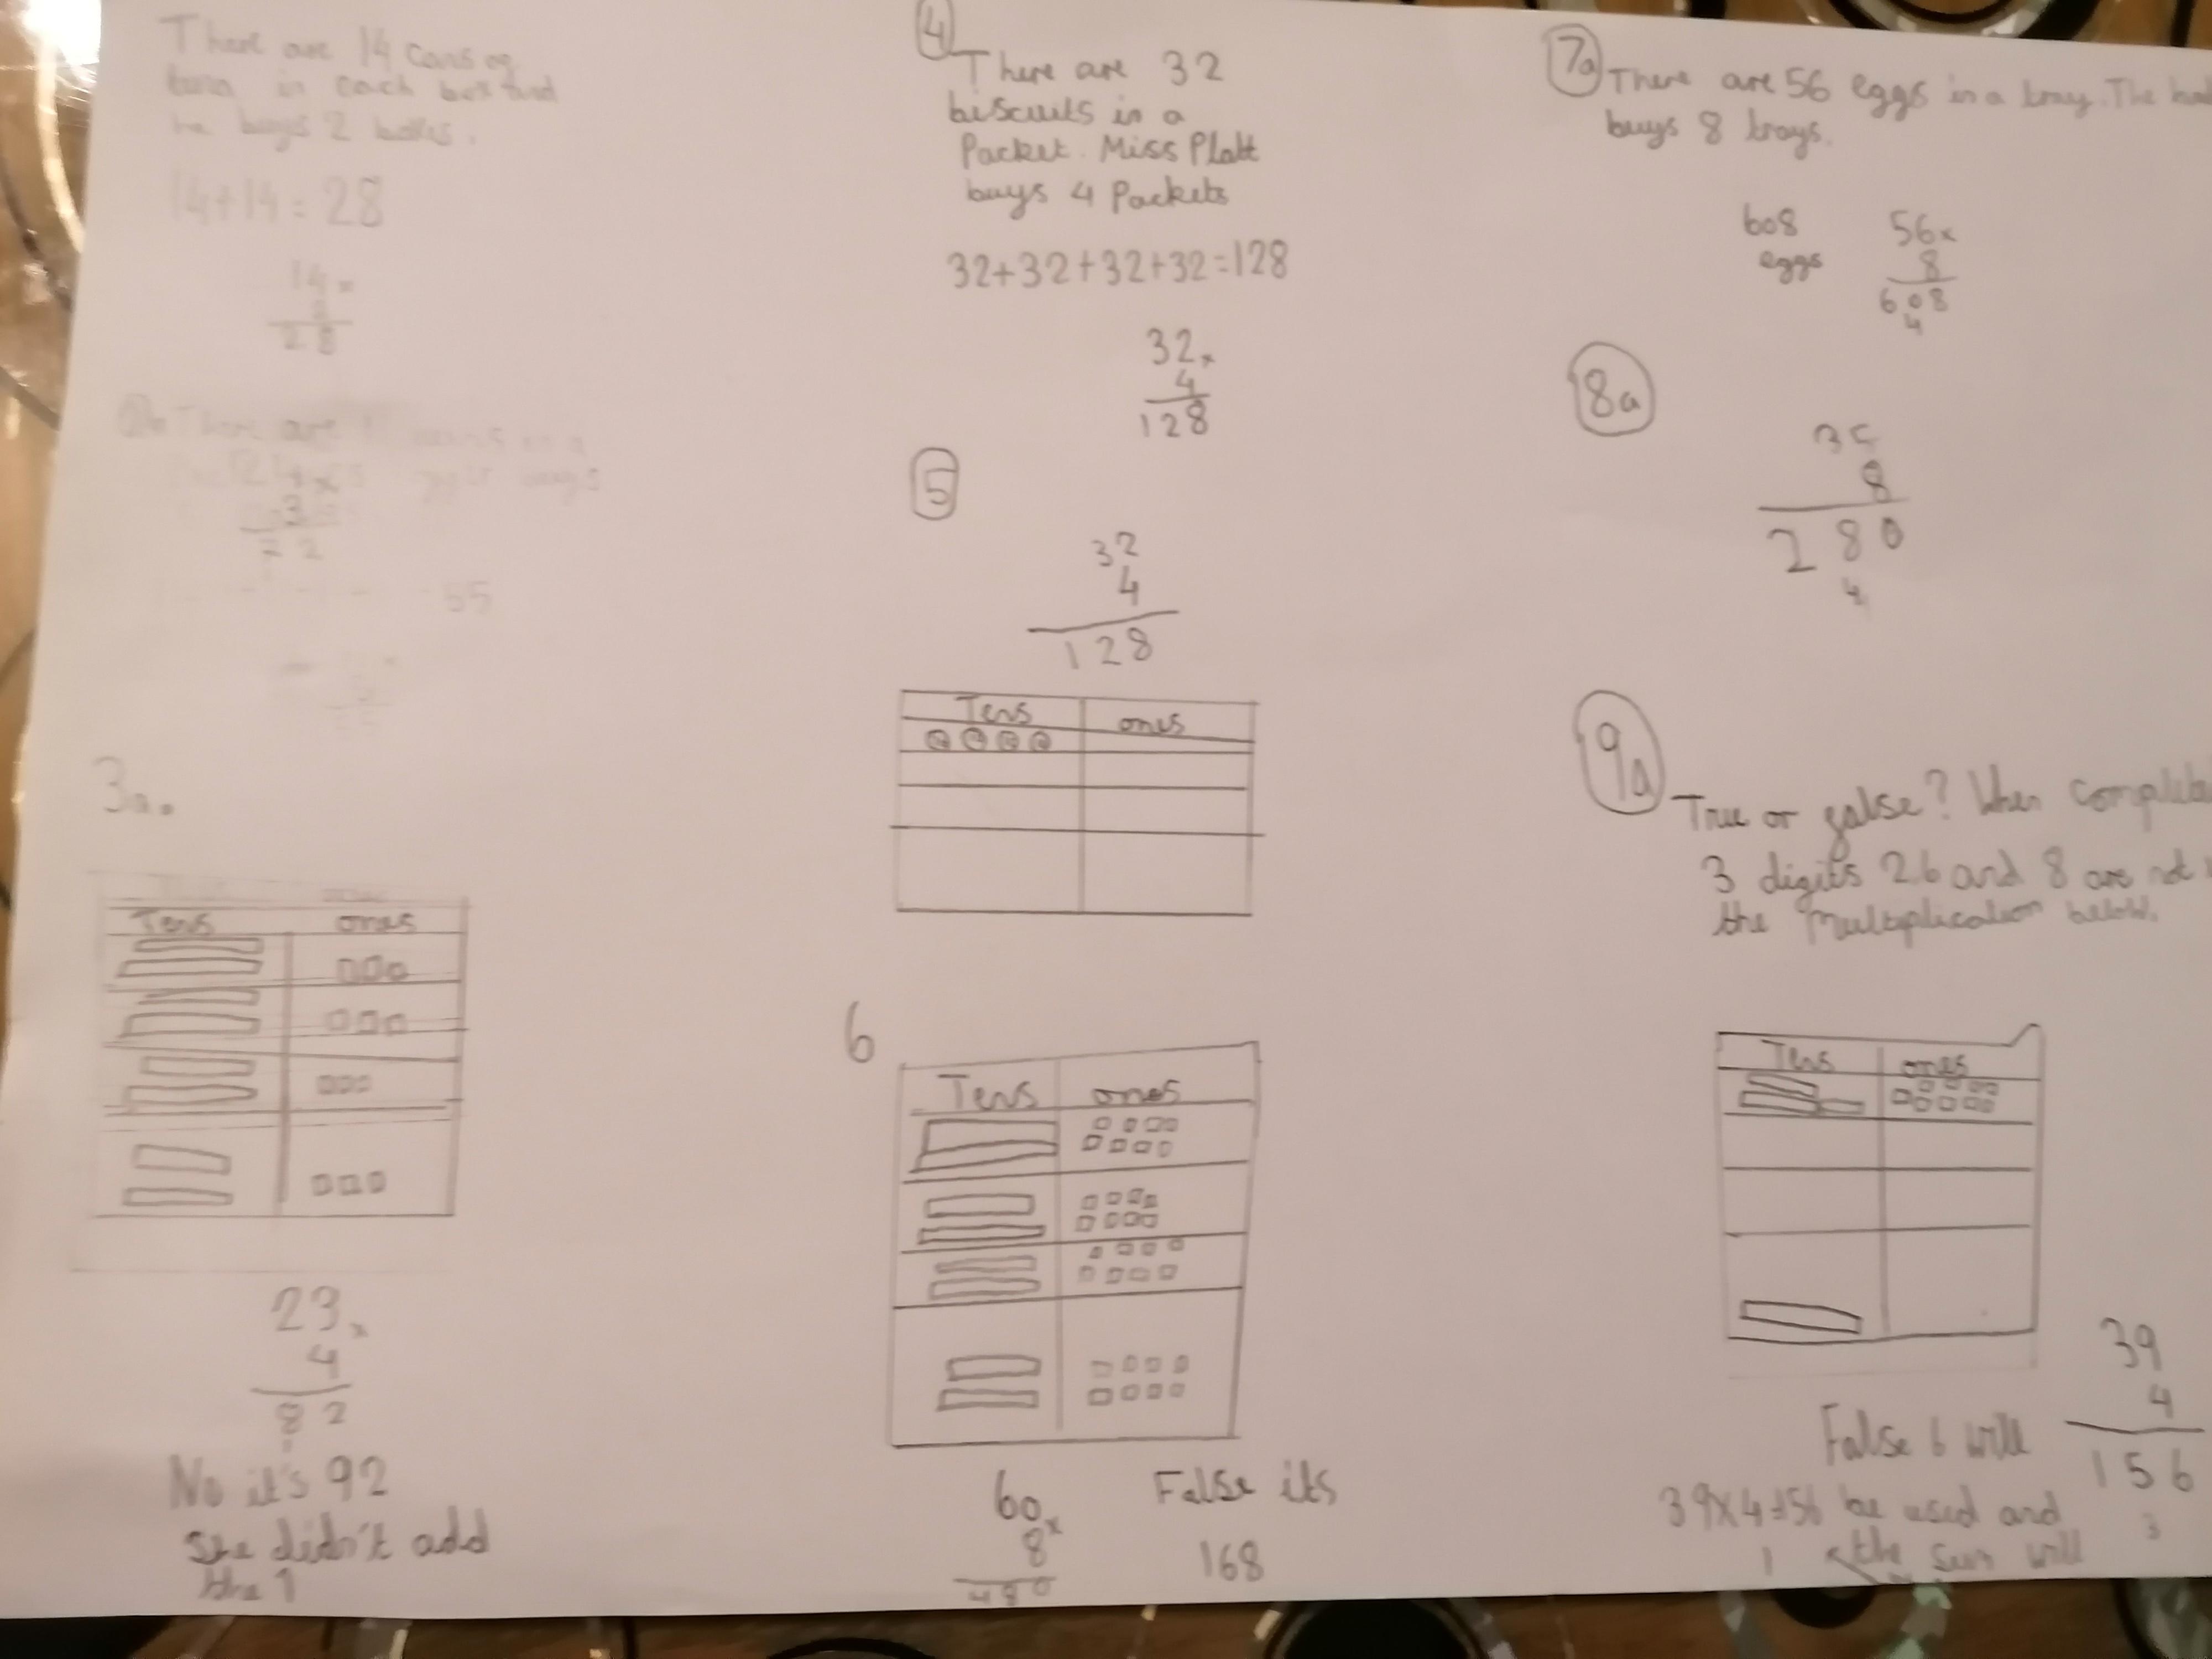 There are 14 cans og
tuna in each box and
he buys 2 boxes.
14+14=28
14x
2
28
There are
24x
3
72
55
3a.
Tens ones
23x
4
82
No it's 92
She didn't add
the 1
4
There are 32
biscuits in a
Packet. Miss Platt
buys 4 Packets
32+32+32+32=128
32x
4
128
5
32
4
128
Tens ones
6
Tens ones
60x
8
480
False its
168
7a There are 56 eggs in a tray. The
buys 8 trays.
608
eggs
56x
8
608
4
8a
35
8
280
4
9a
True or galse? When
3 digits 2.6 and 8 are not
the Multiplication below.
Tens ones
39
4
156
3
False 6 will
39x4=156 be used and
1 the sum will